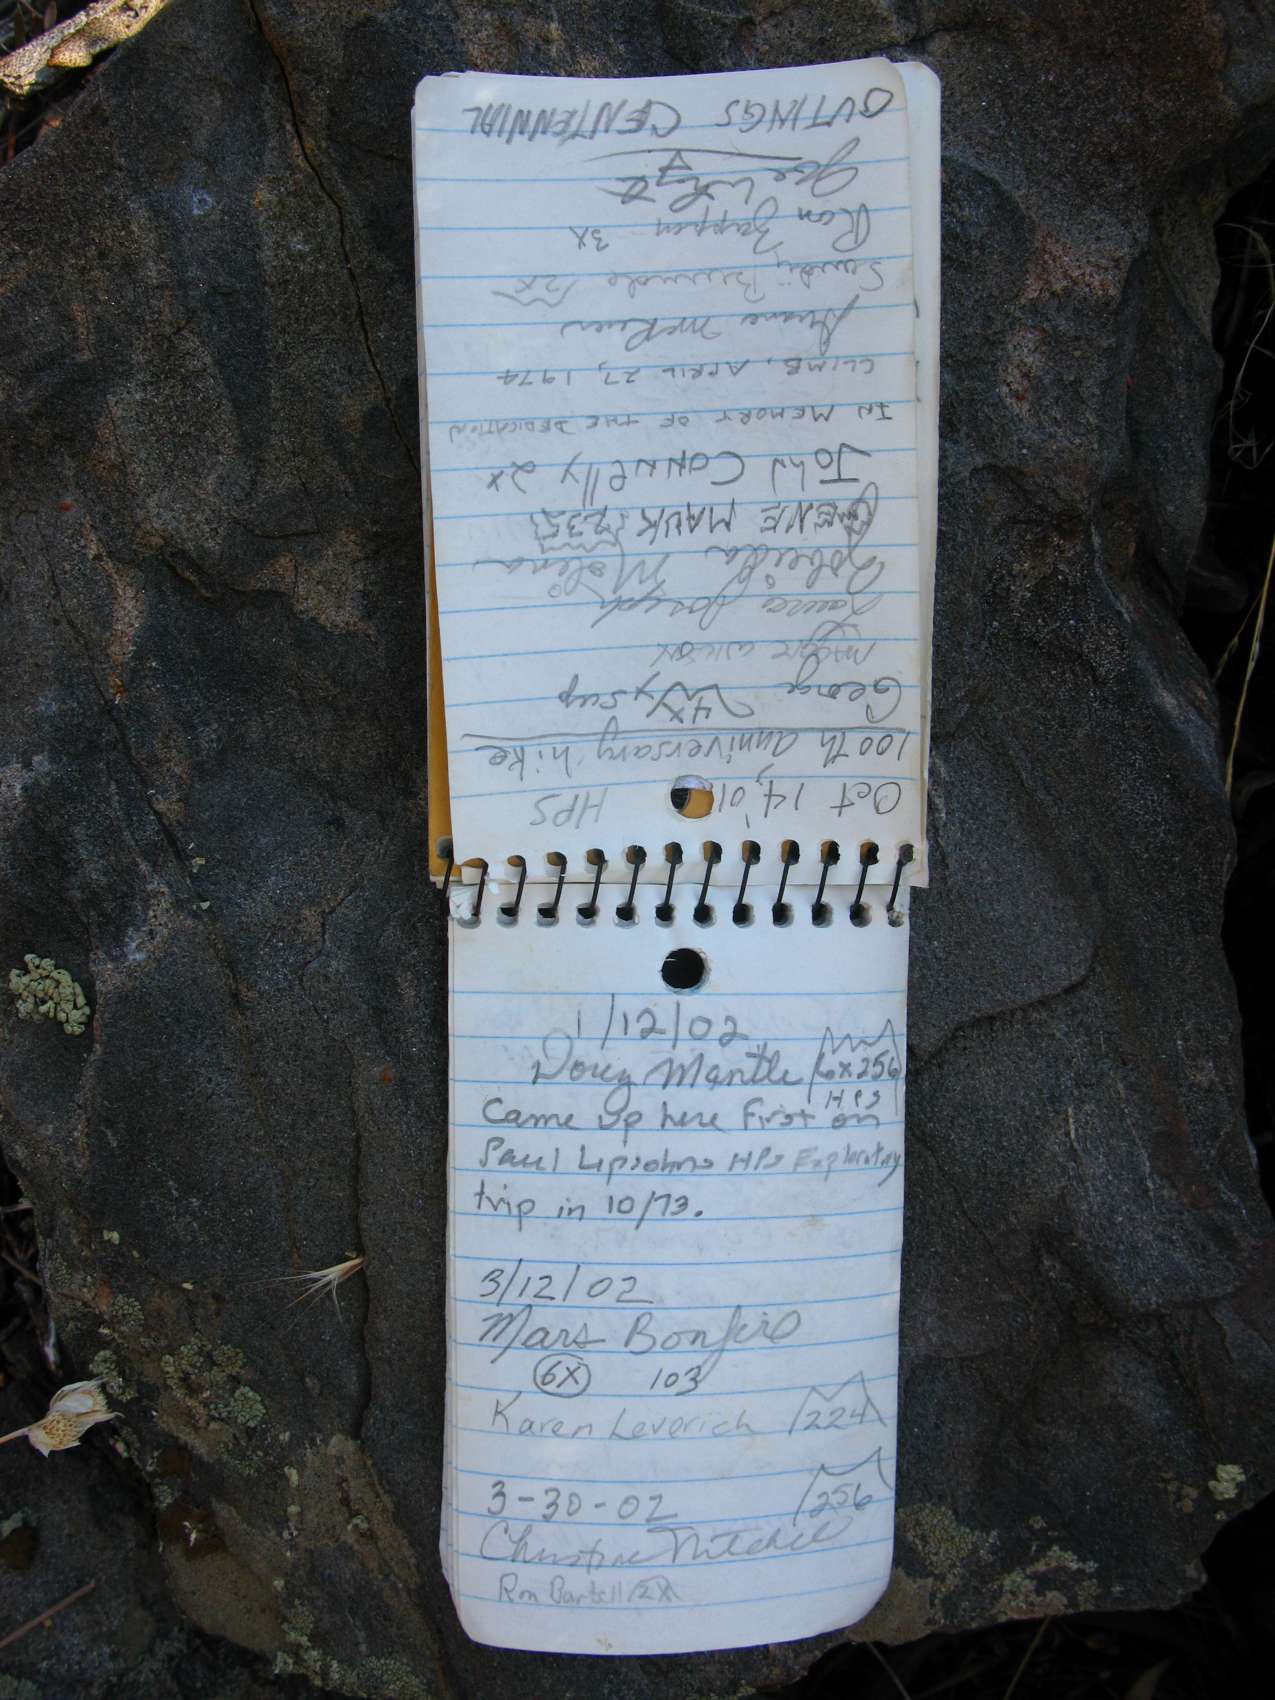 Oct 14, '01 HPS
100th anniversary hike
George Wysup
4X
Maggie Wilson
Laura Joseph
Zobeida Molina
GENE MAUK 235
JOHN CONNElly 2x
IN MEMORY OF THE DEDICATION
CLIMB, APRIL 27, 1974
McRuer
Sandy Burnside 2X
Ron Zappen 3X
Joe
OUTINGS CENTENNIAL
1/12/02
Doug Mantle 6x256
HPS
Came up here first on
Paul Lipsohns HPS Exploratory
trip in 10/73.
3/12/02
Mars Bonfire
6X 103
Karen Leverich 224
3-30-02 256
Christine Mitchell
Ron Bartell 2X